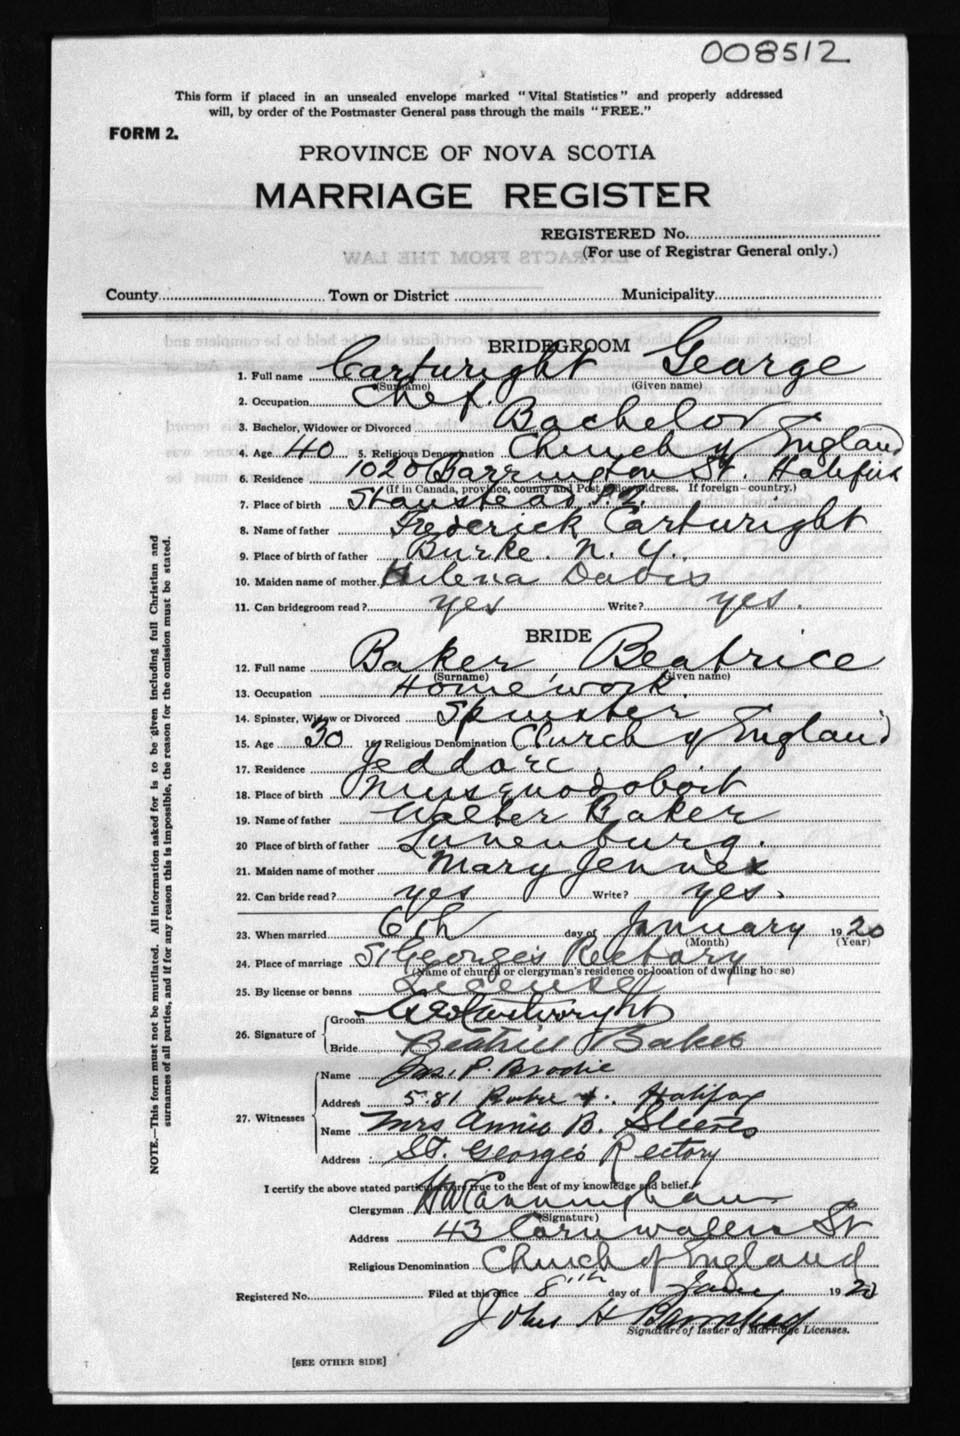 008512
This form if placed in an unsealed envelope marked "Vital Statistics" and properly addressed
will, by order of the Postmaster General pass through the mails "FREE."
FORM 2.
PROVINCE OF NOVA SCOTIA
MARRIAGE REGISTER
REGISTERED No.
(For use of Registrar General only.)
EXTRACTS FROM THE LAW
County Town or District Municipality
BRIDEGROOM
1. Full name Cartwright George
(Surname) (Given name)
2. Occupation Chef.
3. Bachelor, Widower or Divorced Bachelor
4. Age 40 5. Religious Denomination Church of England
6. Residence 1020 Barrington St. Halifax
(If in Canada, province, county and Post Office address. If foreign—country.)
7. Place of birth Stanstead P.Q.
8. Name of father Frederick Cartwright
9. Place of birth of father Burke. N.Y.
10. Maiden name of mother Helena Davis
11. Can bridegroom read? yes Write? yes.
BRIDE
12. Full name Baker Beatrice
(Surname) (Given name)
13. Occupation Home work.
14. Spinster, Widow or Divorced Spinster
15. Age 30 16 Religious Denomination Church of England
17. Residence Jeddore.
18. Place of birth Musquodoboit
19. Name of father Walter Baker
20 Place of birth of father Lunenburg.
21. Maiden name of mother Mary Jennex
22. Can bride read? yes Write? yes.
23. When married 6th day of January 1920
(Month) (Year)
24. Place of marriage St George's Rectory
(Name of church or clergyman's residence or location of dwelling house)
25. By license or banns License
26. Signature of Groom Geo Cartwright
Bride Beatrice Baker
27. Witnesses
Name Jas. P. Brodie
Address 581 St. Halifax
Name Mrs Annie B.
Address St. George's Rectory
I certify the above stated particulars are true to the best of my knowledge and belief.
Clergyman H W Cunningham
(Signature)
Address 43 Cornwallis St
Religious Denomination Church of England
Registered No. Filed at this office 8th day of Jany 1920
John H
Signature of Issuer of Marriage Licenses.
[SEE OTHER SIDE]
NOTE.—This form must not be mutilated. All information asked for is to be given including full Christian and
surnames of all parties, and if for any reason this is impossible, the reason for the omission must be stated.